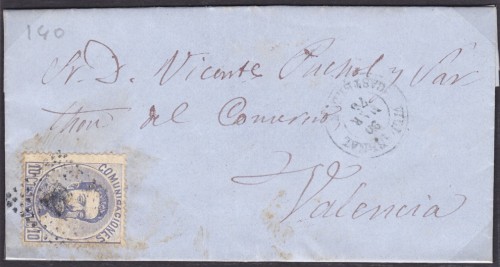 140
Sr. D. Vicente Puchol y Sar
thou del Comercio
Valencia
COMUNICACIONES
10
10